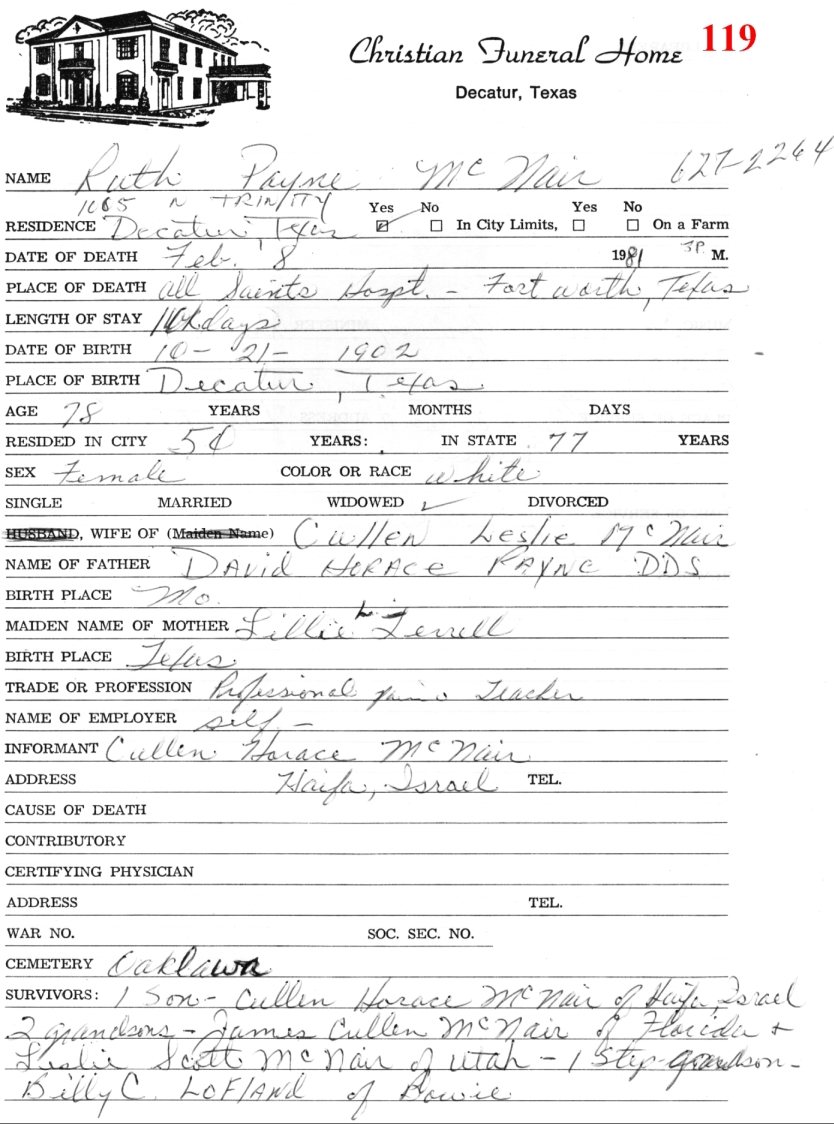 Christian Funeral Home 119
Decatur, Texas
NAME Ruth Payne McNair 627-2264
1105 N TRINITY
Yes No Yes No
RESIDENCE Decatur, Texas In City Limits, On a Farm
DATE OF DEATH Feb. 8 1981 3P M.
PLACE OF DEATH All Saints Hospt. - Fort Worth, Texas
LENGTH OF STAY days
DATE OF BIRTH 10-21-1902
PLACE OF BIRTH Decatur, Texas
AGE 78 YEARS MONTHS DAYS
RESIDED IN CITY YEARS: IN STATE 77 YEARS
SEX Female COLOR OR RACE White
SINGLE MARRIED WIDOWED ✓ DIVORCED
HUSBAND, WIFE OF (Maiden Name) Cullen Leslie McNair
NAME OF FATHER DAVID HORACE PAYNE DDS
BIRTH PLACE Mo.
MAIDEN NAME OF MOTHER Lillie Terrell
BIRTH PLACE Texas
TRADE OR PROFESSION Professional Teacher
NAME OF EMPLOYER self -
INFORMANT Cullen Horace McNair
ADDRESS Haifa, Israel TEL.
CAUSE OF DEATH
CONTRIBUTORY
CERTIFYING PHYSICIAN
ADDRESS TEL.
WAR NO. SOC. SEC. NO.
CEMETERY Oaklawn
SURVIVORS: 1 Son - Cullen Horace McNair of Haifa, Israel
2 grandsons - James Cullen McNair of Florida +
Leslie Scott McNair of Utah - 1 Step-grandson -
Billy C. LOFLAND of Bowie